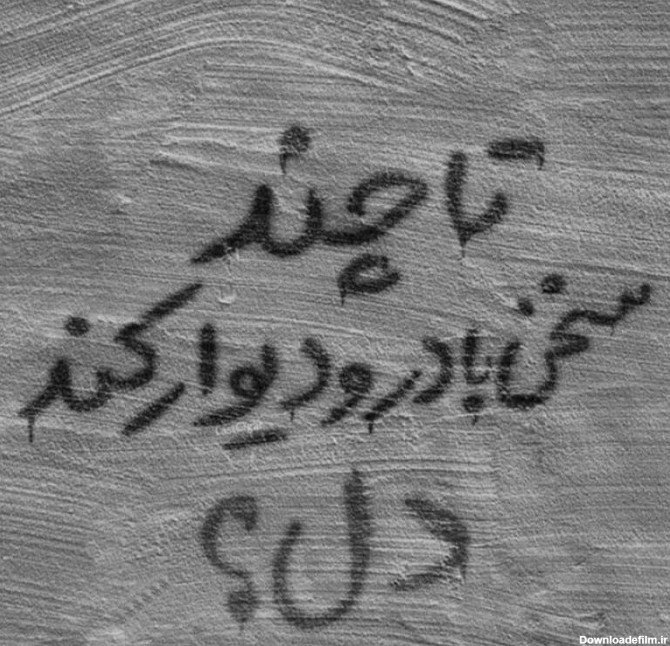 تا چند
سخن با در و دیوار کند
دل؟
Downloadefilm.ir